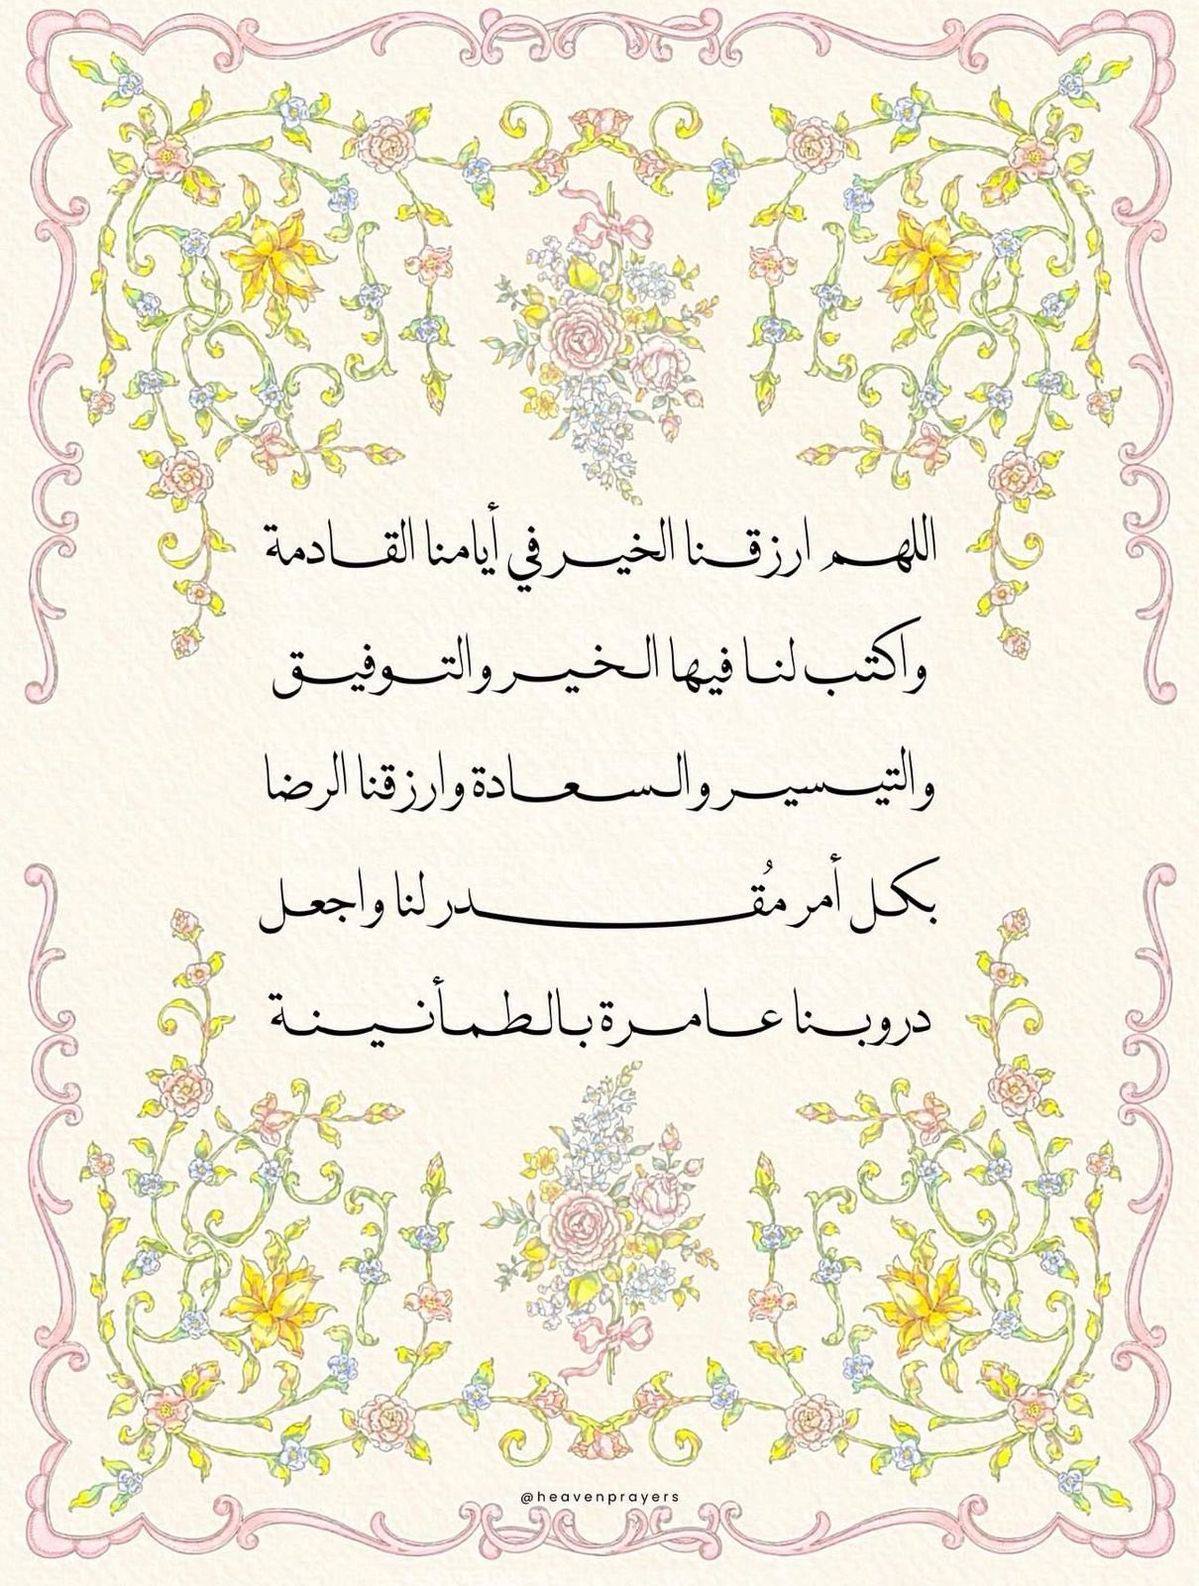 اللهم ارزقنا الخير في أيامنا القادمة
واكتب لنا فيها الخير والتوفيق
والتيسير والسعادة وارزقنا الرضا
بكل أمر مُقدر لنا واجعل
دروبنا عامرة بالطمأنينة
@heavenprayers